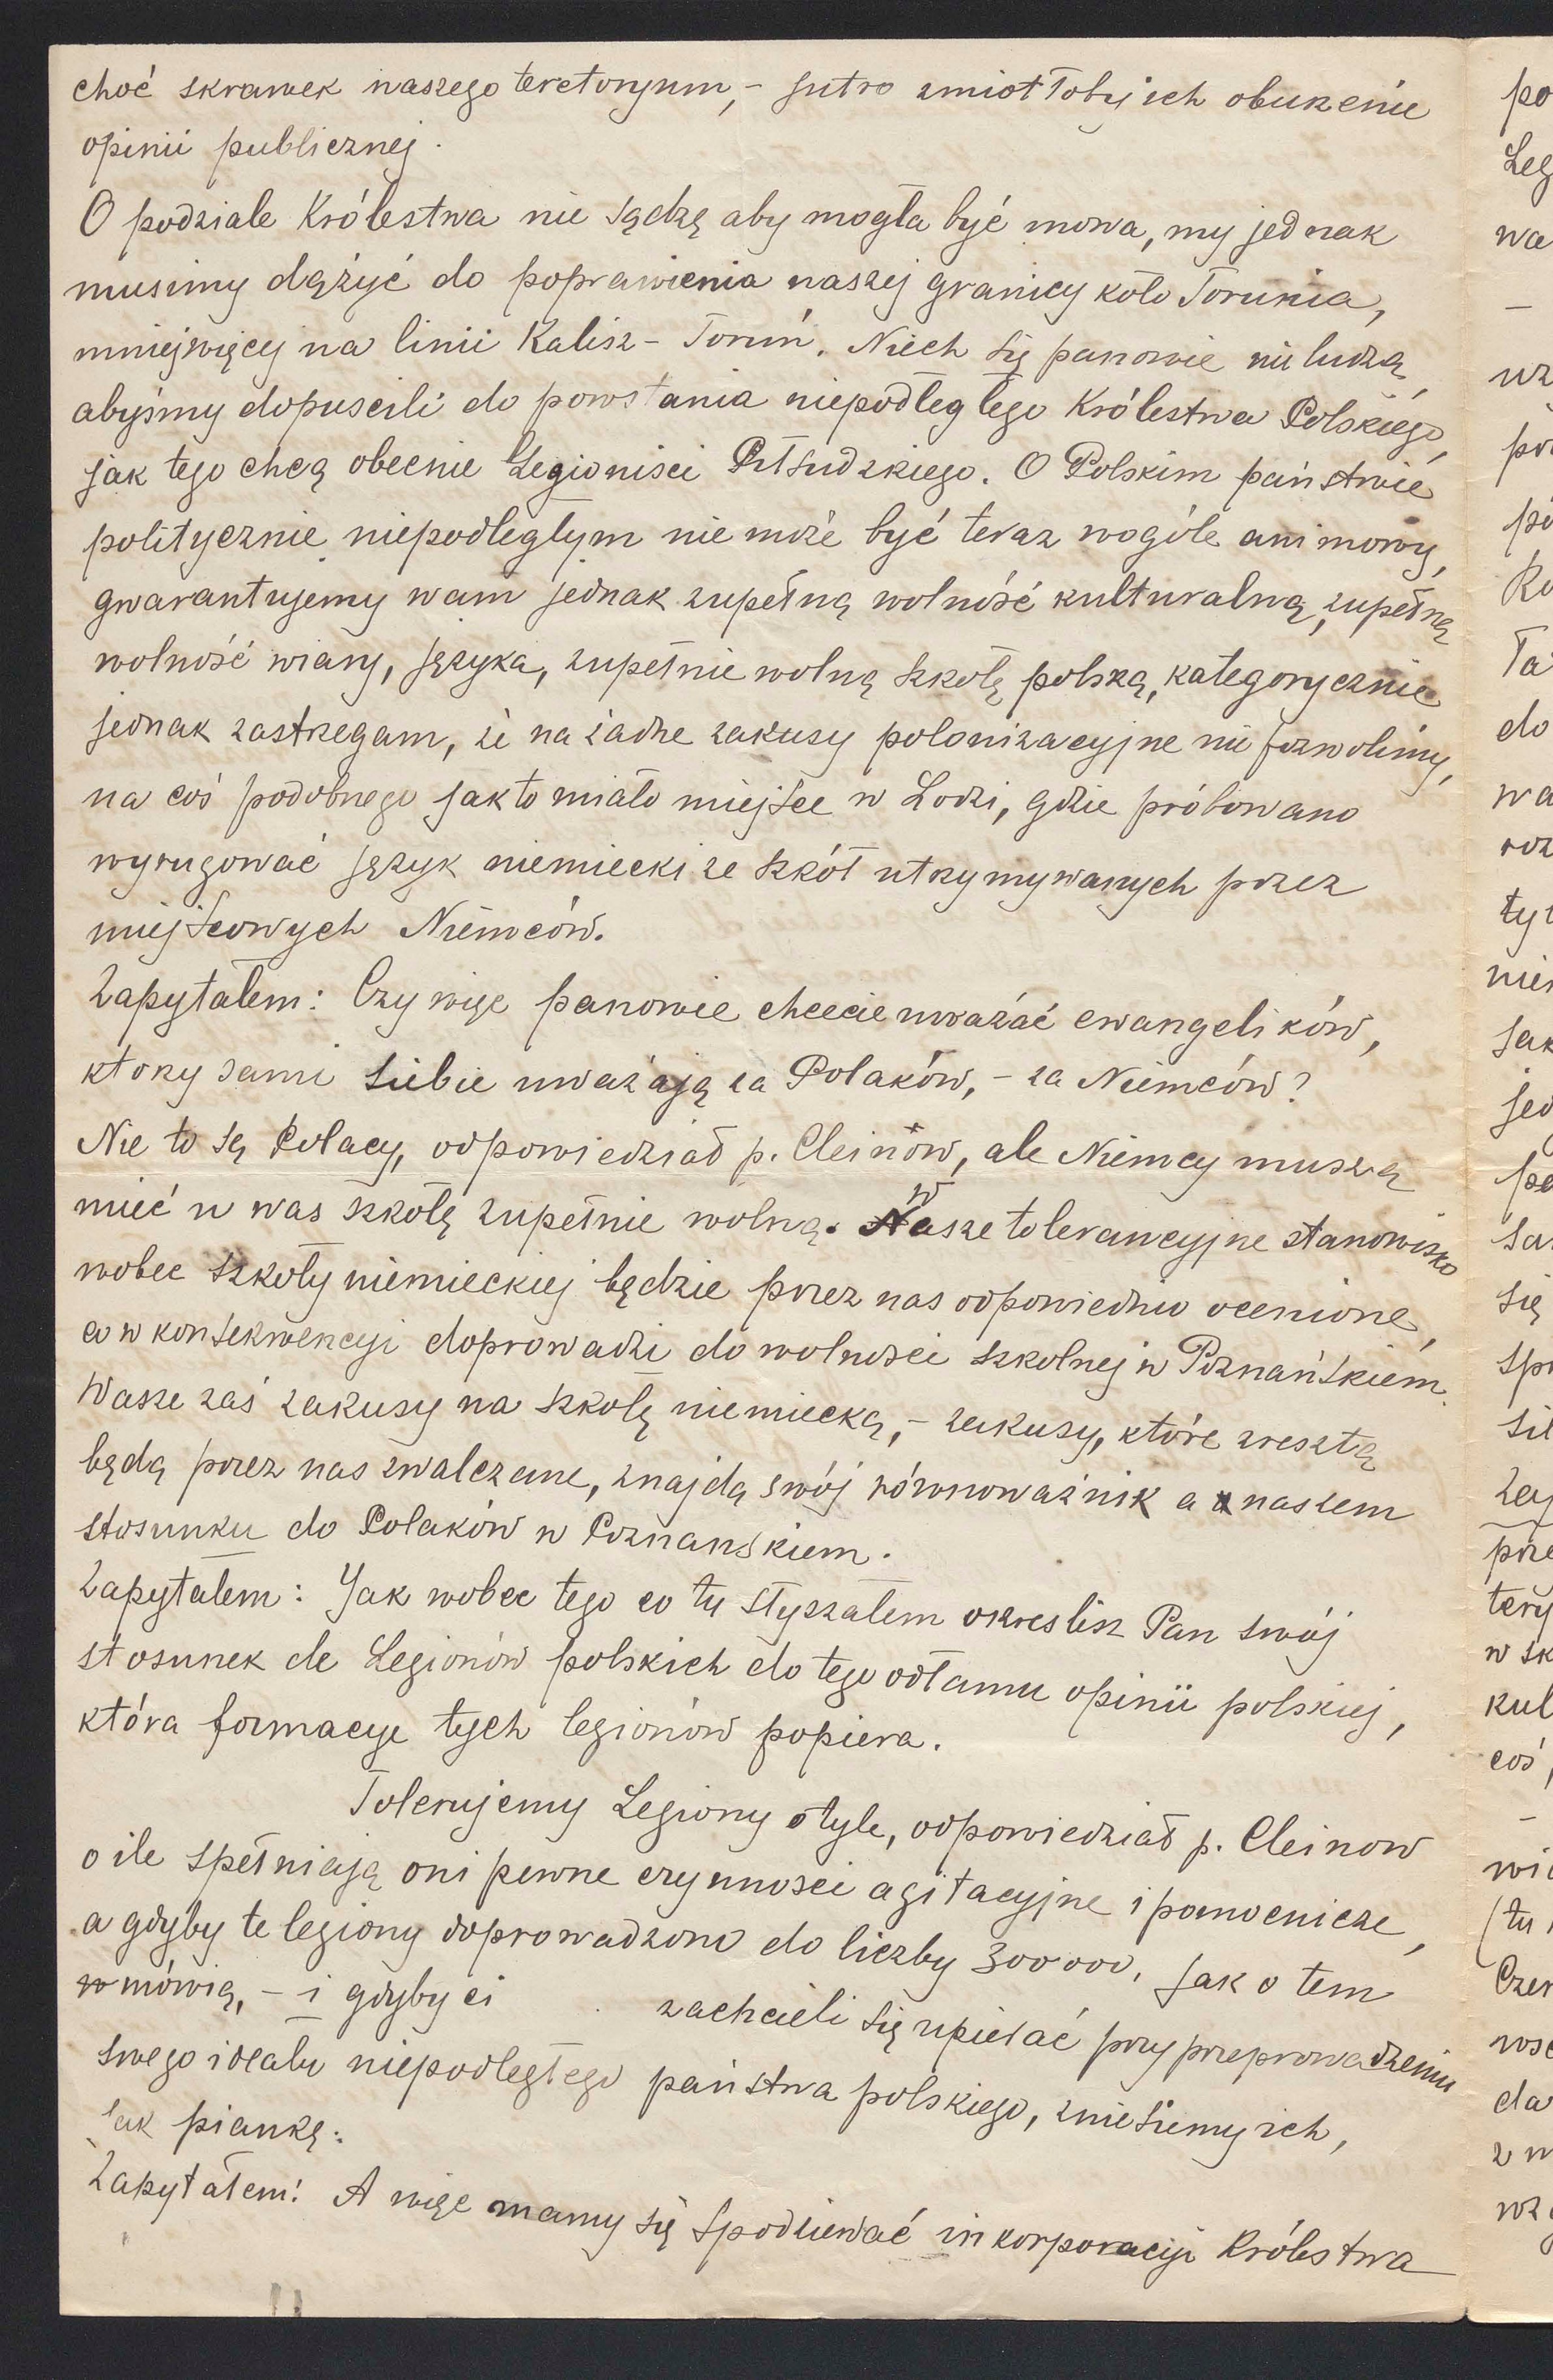 choć skrawek naszego teretoryum,- jutro zmiotłoby ich oburzenie
opinii publicznej.
O podziale Królestwa nie sądzę aby mogła być mowa, my jednak
musimy dążyć do poprawienia naszej granicy koło Torunia,
mniejwięcej na linii Kalisz - Toruń. Niech się panowie nie ludzą,
abyśmy dopuscili do powstania niepodległego Królestwa Polskiego,
jak tego chcą obecnie Legionisci Piłsudzkiego. O Polskim państwie
politycznie niepodległym nie może być teraz wogóle ani mowy,
gwarantujemy wam jednak zupełną wolność kulturalną, zupełną
wolność wiary, języka, zupełnie wolną szkołę polską, kategorycznie
jednak zastrzegam, że na żadne zakusy polonizacyjne nie pozwolimy,
na coś podobnego jak to miało miejsce w Łodzi, gdzie próbowano
wyrugować język niemiecki ze szkół utrzymywanych przez
miejscowych Niemców.
Zapytałem: Czy więc panowie chcecie uważać ewangelików,
ktorzy sami siebie uważają za Polaków, - za Niemców?
Nie to są Polacy, odpowiedział p. Cleinow, ale Niemcy muszą
mieć u was szkołę zupełnie wolną. Wasze tolerancyjne stanowisko
wobec szkoły niemieckiej będzie przez nas odpowiednio ocenione,
co w konsekwencyi doprowadzi do wolnosci szkolnej w Poznańskiem.
Wasze zaś zakusy na szkołę niemiecką, - zakusy, które zresztą
będą przez nas zwalczane, znajdą swój równoważnik a w naszem
stosunku do Polaków w Poznanskiem.
Zapytałem: Jak wobec tego co tu słyszałem okreslisz Pan swój
stosunek do Legionów polskich do tego odłamu opinii polskiej,
która formacye tych legionów popiera.
Tolerujemy Legiony o tyle, odpowiedział p. Cleinow
o ile spełniają oni pewne czynnosci agitacyjne i pomocnicze,
a gdyby te legiony doprowadzono do liczby 300000, jak o tem
mówią, - i gdyby ci zachcieli się upierać przy przeprowadzeniu
swego idealu niepodległego państwa polskiego, zniesiemy ich,
jak piankę.
Zapytałem: A więc mamy się spodziewać inkorporacyi Królestwa